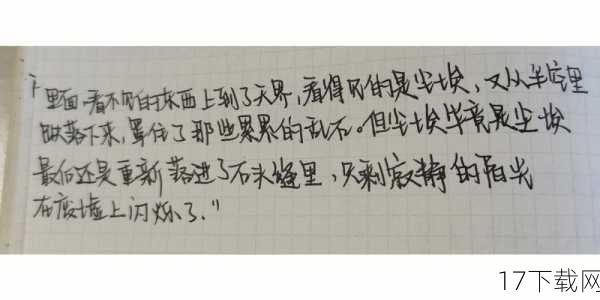 "里面,看不见的东西上到了天界,看得见的是尘埃,又从半空里
跌落下来,罩住了那些累累的乱石。但尘埃毕竟是尘埃
最后还是重新落进了石头缝里,只剩寂静的阳光
在废墟上闪烁了."
17下载网